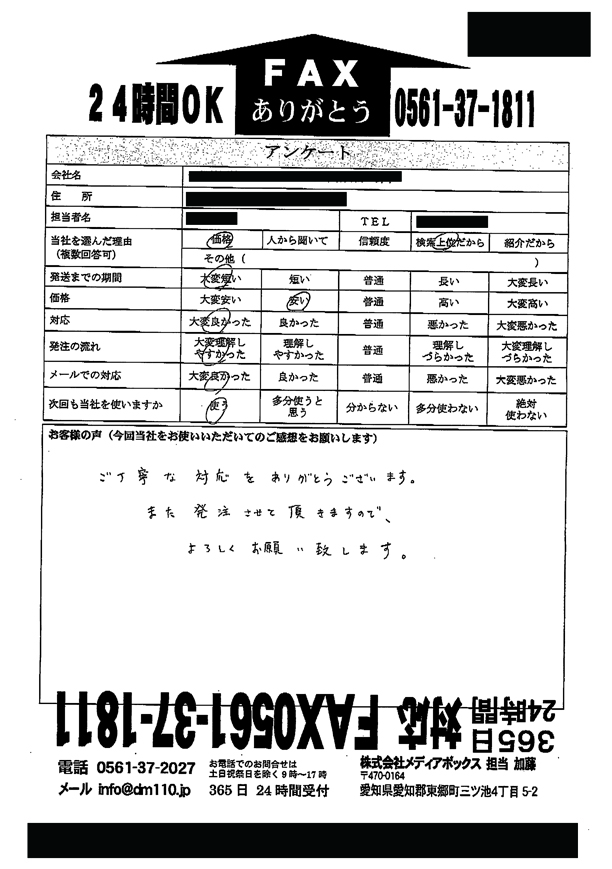 FAX
24時間OK ありがとう 0561-37-1811
アンケート
会社名
住 所
担当者名 TEL
当社を選んだ理由 価格 人から聞いて 信頼度 検索上位だから 紹介だから
(複数回答可) その他( )
発送までの期間 大変短い 短い 普通 長い 大変長い
価格 大変安い 安い 普通 高い 大変高い
対応 大変良かった 良かった 普通 悪かった 大変悪かった
発注の流れ 大変理解しやすかった 理解しやすかった 普通 理解しづらかった 大変理解しづらかった
メールでの対応 大変良かった 良かった 普通 悪かった 大変悪かった
次回も当社を使いますか 使う 多分使うと思う 分からない 多分使わない 絶対使わない
お客様の声(今回当社をお使いいただいてのご感想をお願いします)
ご丁寧な対応をありがとうございます。
また発注させて頂きますので、
よろしくお願い致します。
365日24時間対応 FAX0561-37-1811
電話 0561-37-2027 お電話でのお問合せは 株式会社メディアボックス 担当 加藤
土日祝祭日を除く9時~17時 〒470-0164
メール info@dm110.jp 365日 24時間受付 愛知県愛知郡東郷町三ツ池4丁目5-2